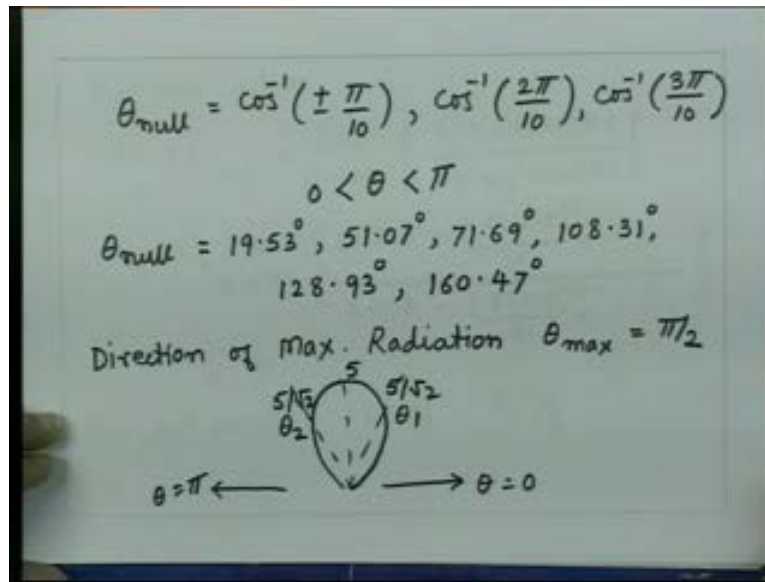 θnull = cos⁻¹(± π/10), cos⁻¹(2π/10), cos⁻¹(3π/10)
0 < θ < π
θnull = 19.53°, 51.07°, 71.69°, 108.31°,
128.93°, 160.47°
Direction of Max. Radiation θmax = π/2
5
5/√2 5/√2
θ2 θ1
θ=π ← → θ=0